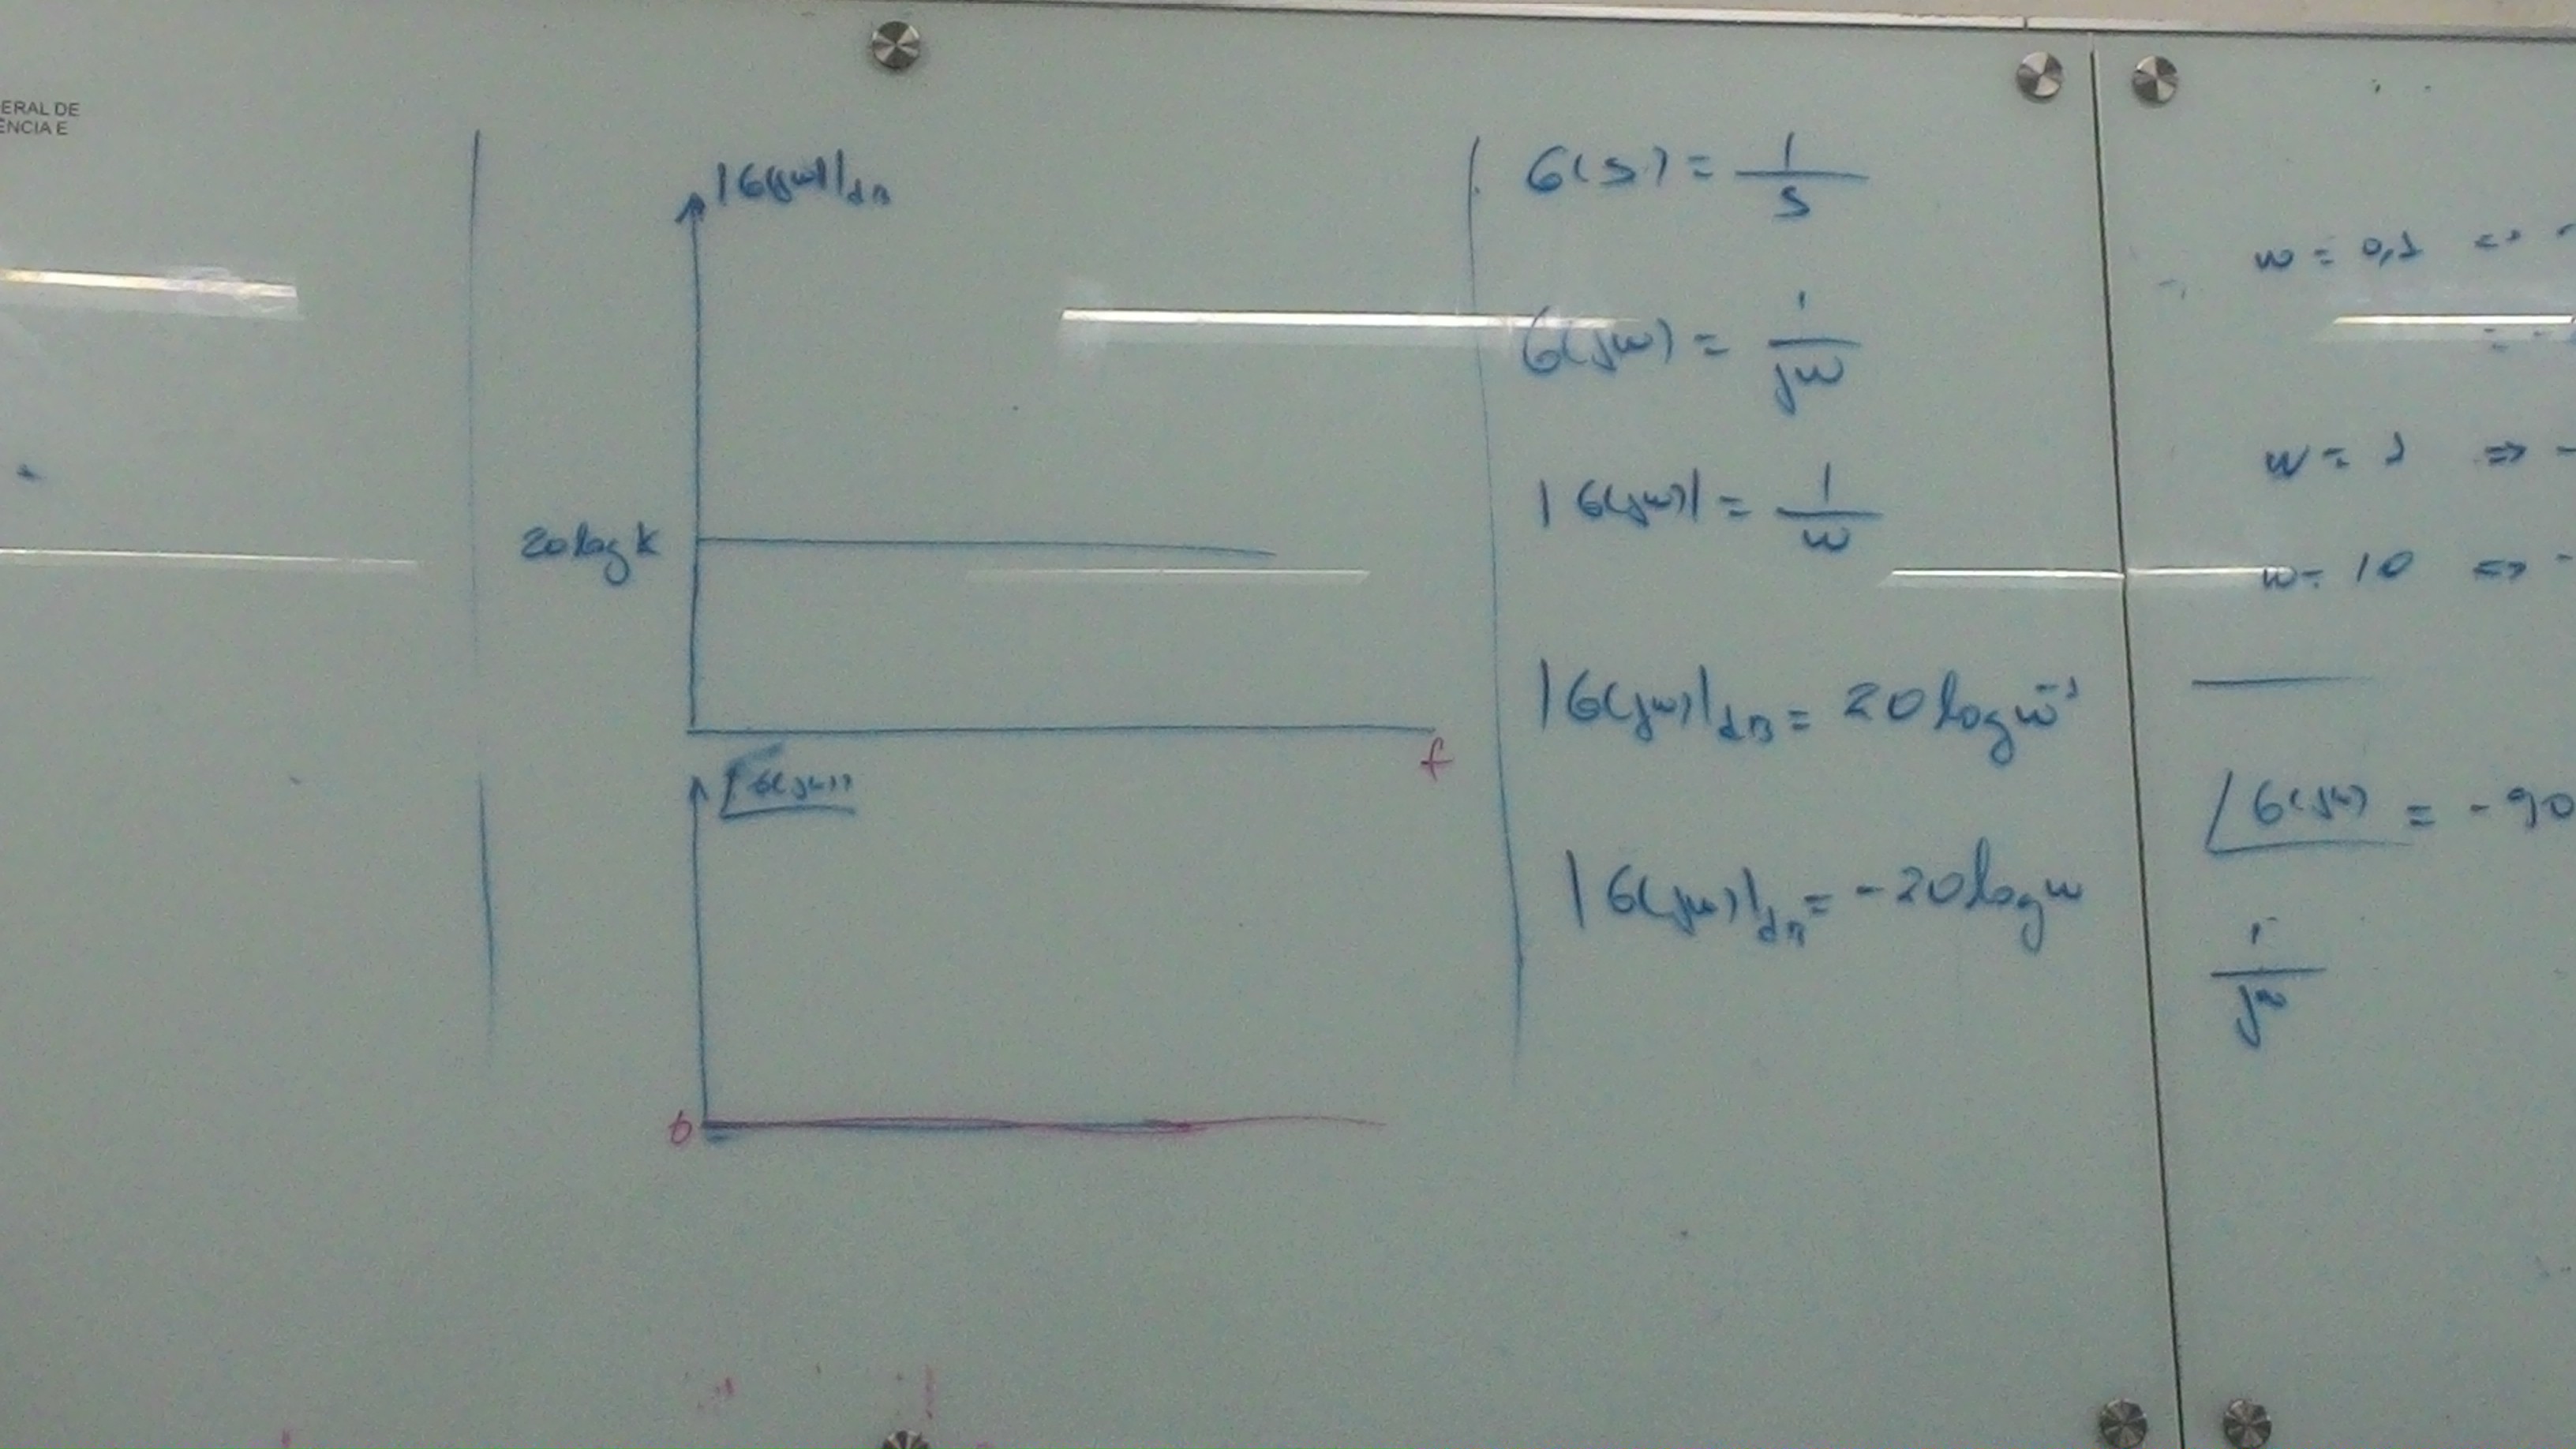 ERAL DE
ÊNCIA E
|G(jw)|dB
20 log k
f
G(jw)
0
G(s) = 1/s
G(jw) = 1/jw
|G(jw)| = 1/w
|G(jw)|dB = 20 log w⁻¹
|G(jw)|dB = -20 log w
w = 0,1 =>
w = 1 => -
w = 10 => -
∠G(jw) = -90
1/jw